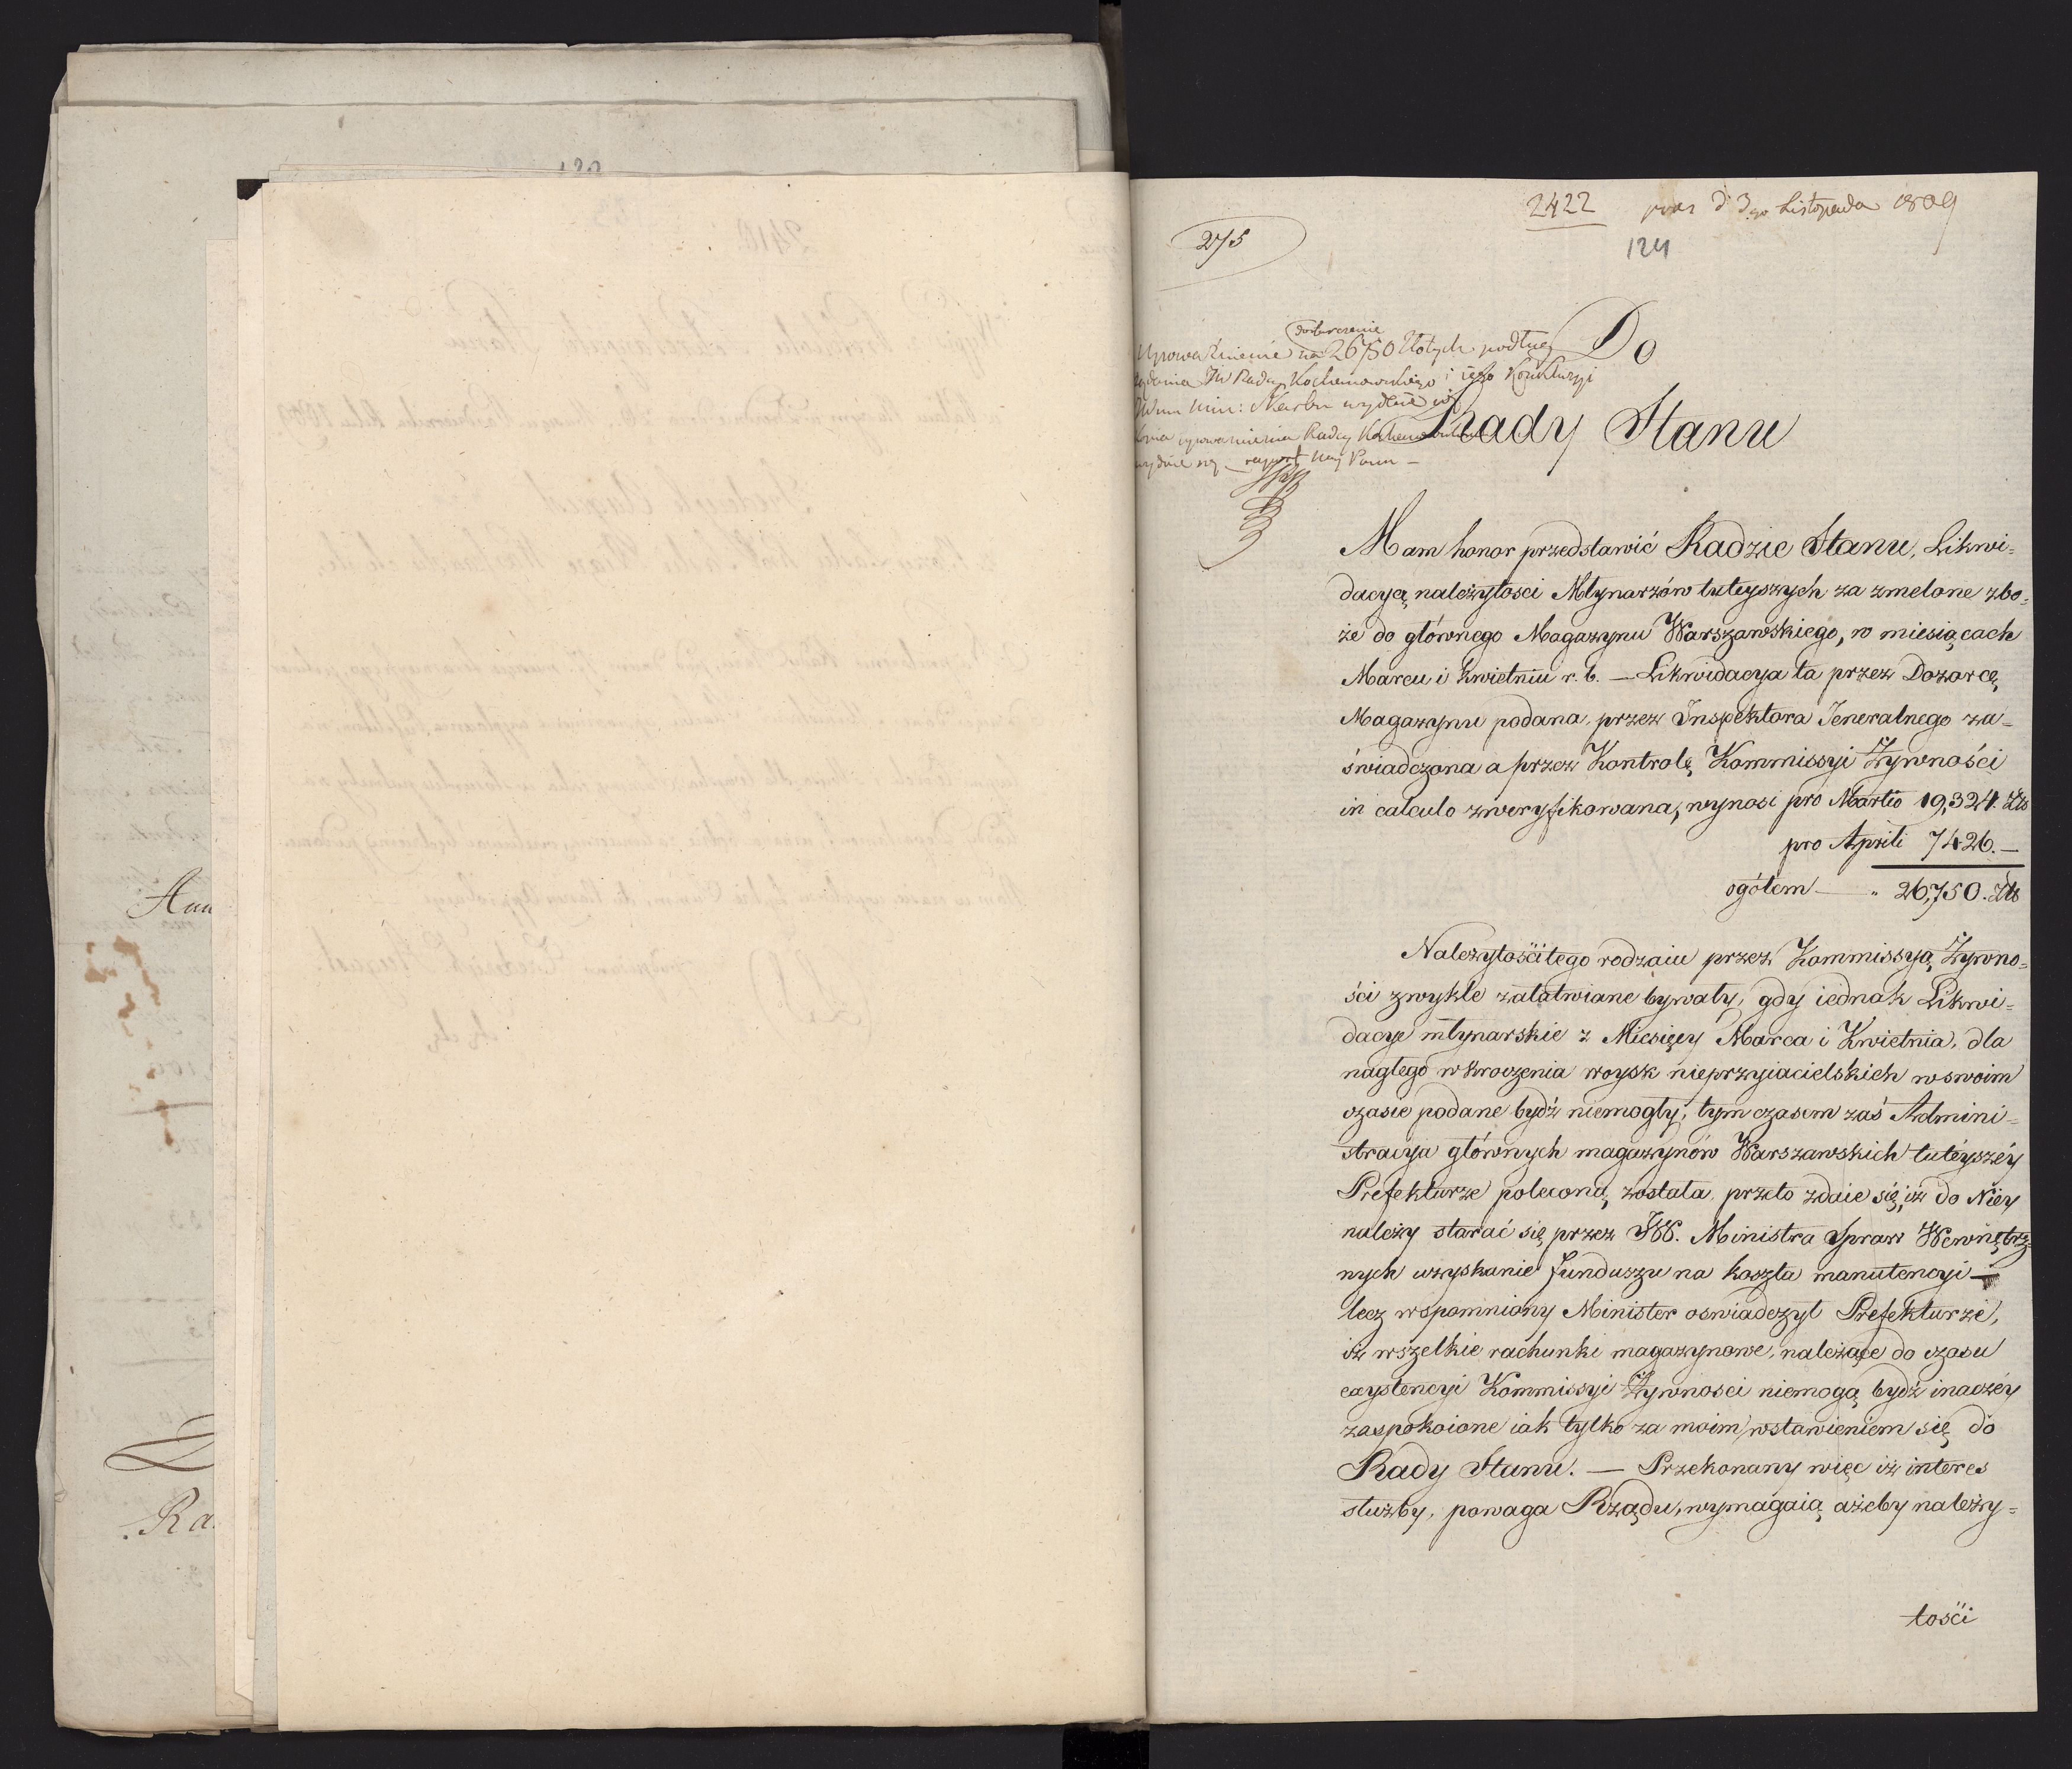 2422 prez d 3go Listopada 1809
124
275
Do
Rady Stanu
dostarczenie
Upoważnienie na 26750 Złotych podług
żądania JW Radcy Kochanowskiego i iego
Min: Skarbu wydane
Radcy
raport
Mam honor przedstawić Radzie Stanu, Likwi=
dacyą należytosci Młynarzów tuteyszych za zmelone zbo=
że do głównego Magazynu Warszawskiego, w miesiącach
Marcu i Kwietniu r. b. — Likwidacya ta przez Dozorcę
Magazynu podana, przez Inspektora Jeneralnego za=
świadczona a przez Kontrolę Kommissyi Żywności
in calculo zweryfikowana, wynosi pro Martio 19,324. Złt
pro Aprili 7426. —
ogółem — „ 26,750. Złt
Należytości tego rodzaiu przez Kommissyą Żywno=
ści zwykle załatwiane bywały, gdy iednak Likwi=
dacye młynarskie z Miesięcy Marca i Kwietnia, dla
nagłego wkroczenia woysk nieprzyiacielskich w swoim
czasie podane bydź niemogły, tym czasem zaś Admini=
stracya głównych magazynów Warszawskich tuteyszéy
Prefekturze poleconą została, przeto zdaie się, iż do Niéy
należy starać się przez JW. Ministra Spraw Wewnętrz=
nych uzyskanie funduszu na koszta manutencyi —
lecz wspomniony Minister oswiadczył Prefekturze,
iż wszelkie rachunki magazynowe, należące do czasu
exystencyi Kommissyi Żywnosci niemogą bydź inaczéy
zaspokoione iak tylko za moim wstawieniem się do
Rady Stanu. — Przekonany więc iż interes
służby, powaga Rządu, wymagaią ażeby należy=
tości
Ra